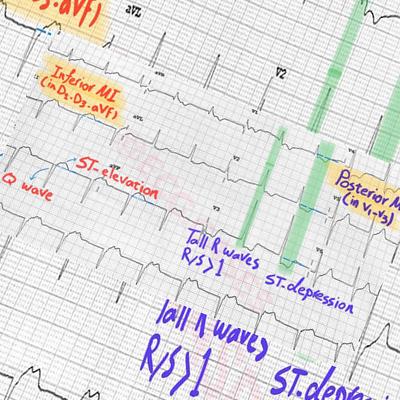 3.aVf)
aVL
V2
Inferior MI
(in D2-D3-aVf)
V1
aVL
V2
V4
aVF
ST-elevation
Q wave
Posterior M
(in V1-V3)
V3
Tall R waves
R/S>1
ST-depression
Tall R waves
R/S>1
ST-depres